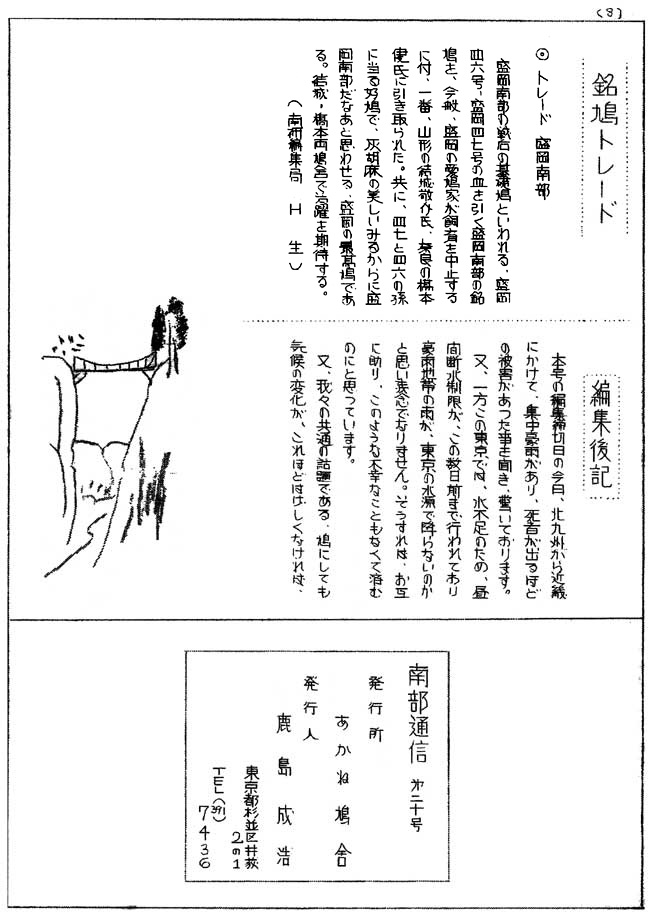 (8)
銘鳩トレード
◎トレード 盛岡南部
盛岡南部の戦后の基礎鳩といわれる、盛岡
四六号・盛岡四七号の血を引く盛岡南部の銘
鳩を、今般、盛岡の愛鳩家が飼育を中止する
に付、一番、山形の結城敬介氏、奈良の橋本
健氏に引き取られた。共に、四七と四六の孫
に当る好鳩で、灰胡麻の美しいみるからに盛
岡南部だなあと思わせる、盛岡の最高鳩であ
る。結城・橋本両鳩舎で活躍を期待する。
(南部編集局 H 生)
編集後記
本号の編集締切日の今日、北九州から近畿
にかけて、集中豪雨があり、死者が出るほど
の被害があつた事を聞き、驚いております。
又、一方この東京では、水不足のため、昼
間断水制限が、この数日前まで行われており
豪雨地帯の雨が、東京の水源で降らないのか
と思い残念でなりません。そうすれば、お互
に助り、このような不幸なこともなくて済む
のにと思つています。
又、我々の共通の話題である、鳩にしても
気候の変化が、これほどはげしくなければ、
南部通信 第二十号
発行所
あかね鳩舎
発行人
鹿島成浩
東京都杉並区井荻
2の1
TEL(391)
7436